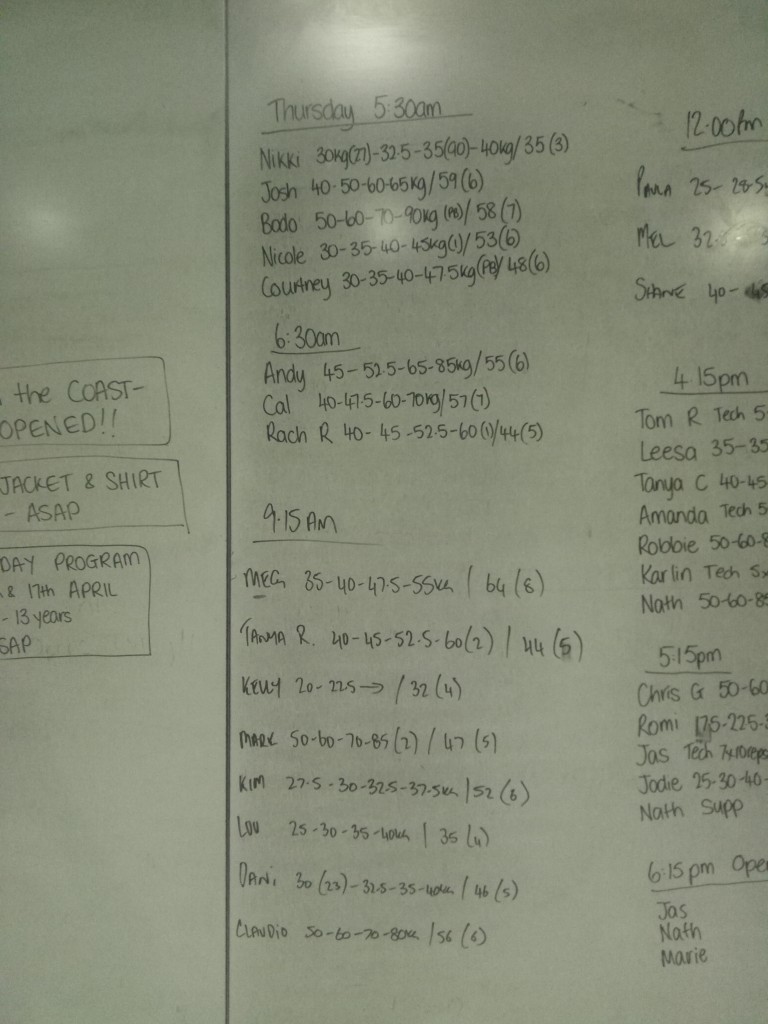 the COAST-
OPENED!!
JACKET & SHIRT
- ASAP
DAY PROGRAM
& 17th APRIL
- 13 years
SAP
Thursday 5:30am
Nikki 30kg(27)-32.5-35(90)-40kg/35(3)
Josh 40-50-60-65kg/59(6)
Bodo 50-60-70-90kg(PB)/58(7)
Nicole 30-35-40-45kg(1)/53(6)
Courtney 30-35-40-47.5kg(PB)/48(6)
6:30am
Andy 45-52.5-65-85kg/55(6)
Cal 40-47.5-60-70kg/57(7)
Rach R 40-45-52.5-60(1)/44(5)
9.15AM
MEG 35-40-47.5-55KG / 64(8)
TANYA R. 40-45-52.5-60(2) / 44(5)
KELLY 20-22.5→ / 32(4)
MARK 50-60-70-85(2) / 47(5)
KIM 27.5-30-32.5-37.5KG / 52(6)
LOU 25-30-35-40KG / 35(4)
DANI 30(23)-32.5-35-40KG / 46(5)
CLAUDIO 50-60-70-80KG / 56(6)
12.00PM
PAULA 25-28.5
MEL 32.
SHANE 40-
4.15pm
Tom R Tech 5
Leesa 35-35
Tanya C 40-45
Amanda Tech 5
Robbie 50-60-8
Karlin Tech 5x
Nath 50-60-85
5:15pm
Chris G 50-60
Romi 17.5-22.5-
Jas Tech 7x10reps
Jodie 25-30-40-
Nath Supp
6:15pm Ope
Jas
Nath
Marie